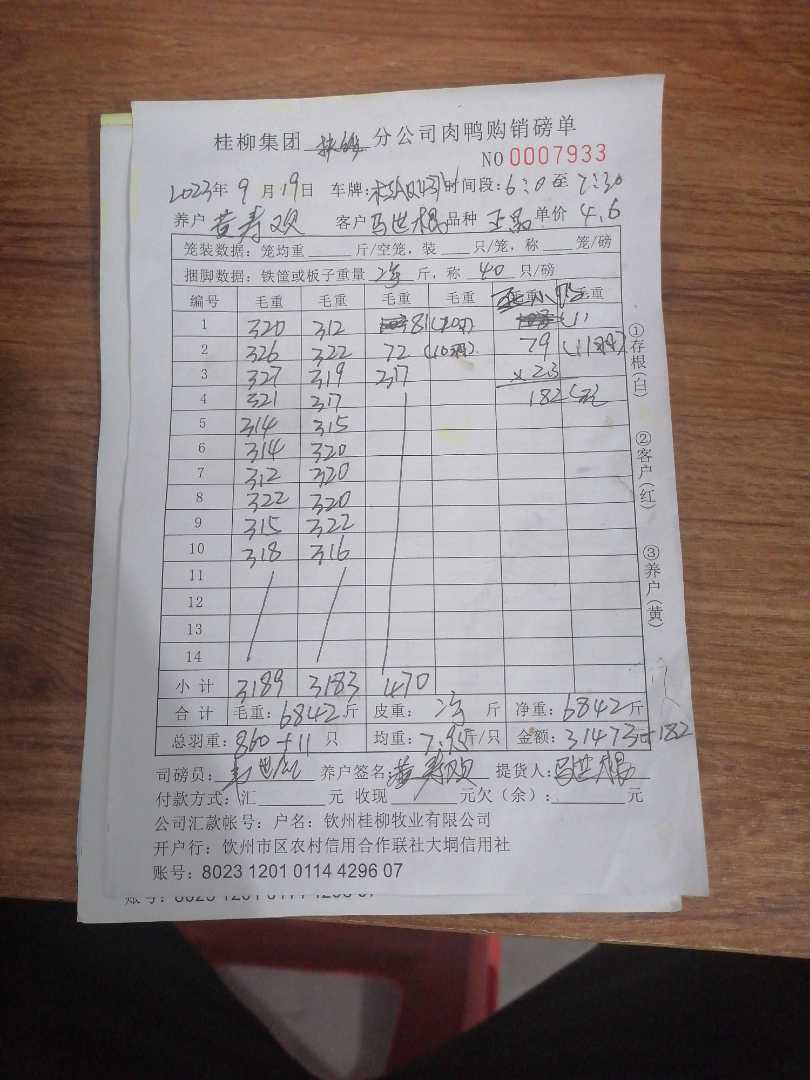 桂柳集团 分公司肉鸭购销磅单
NO 0007933
2023年9月19日 车牌: 时间段:6:0至7:30
养户 黄寿双 客户 马世杨 品种 正品 单价 4.6
笼装数据:笼均重 斤/空笼,装 只/笼,称 笼/磅
捆脚数据:铁筐或板子重量 斤,称 40 只/磅
编号 毛重 毛重 毛重 毛重 毛重 毛重
1 320 312 81
2 326 322 72 79
3 327 319 317 x2.3
4 321 317 182元
5 314 315
6 314 320
7 312 320
8 322 320
9 315 322
10 318 316
11
12
13
14
小计 3189 3183 470
合计 毛重:6842斤 皮重: 斤 净重:6842斤
总羽重:860+11只 均重:7.95斤/只 金额:31473+182
司磅员: 养户签名:黄寿双 提货人:马世杨
付款方式:汇 元 收现 元欠(余): 元
公司汇款帐号:户名:钦州桂柳牧业有限公司
开户行:钦州市区农村信用合作联社大垌信用社
账号:8023 1201 0114 4296 07
①存根(白) ②客户(红) ③养户(黄)